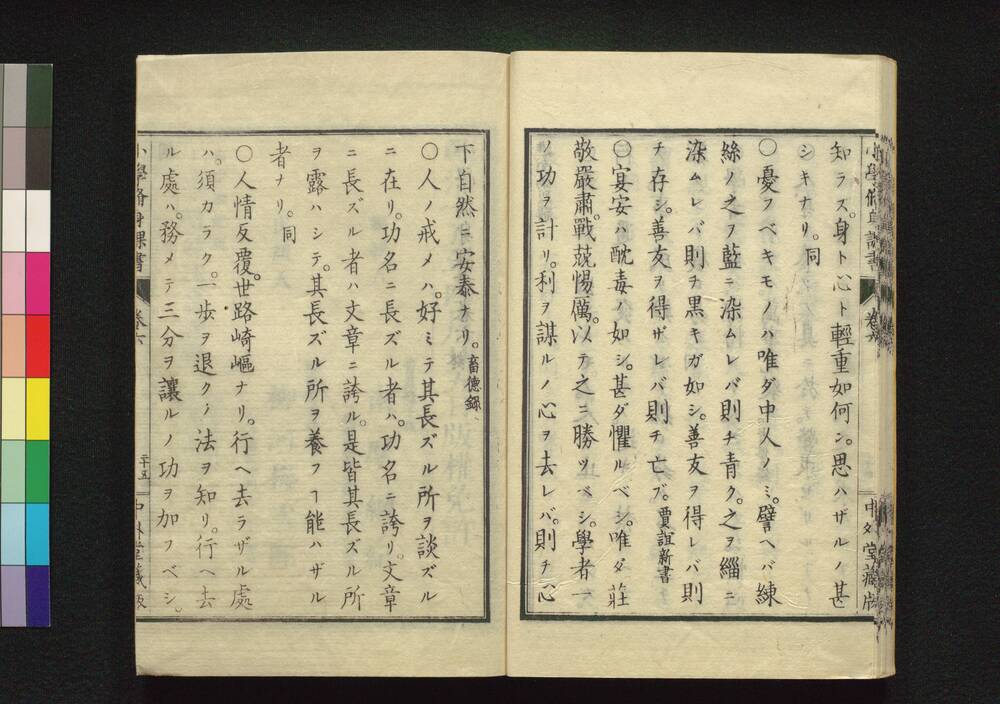 知ラズ。身ト心ト輕重如何ン。思ハザルノ甚
シキナリ。同
〇憂フベキモノハ唯ダ中人ノミ。譬ヘバ練
絲ノ之ヲ藍ニ染ムレバ則チ青ク。之ヲ緇ニ
染ムレバ則ヲ黒キガ如シ。善友ヲ得レバ則
チ存シ。善友ヲ得ザレバ則チ亡ブ。賈誼新書
〇宴安ハ酖毒ノ如シ。甚ダ懼ルベシ。唯ダ莊
敬嚴肅。戰兢惕厲。以テ之ニ勝ツベシ。學者一
ノ功ヲ計リ。利ヲ謀ルノ心ヲ去レバ。則チ心
下自然ニ安泰ナリ。畜德錄
〇人ノ戒メハ。好ミテ其長ズル所ヲ談ズル
ニ在リ。功名ニ長ズル者ハ。功名ニ誇リ。文章
ニ長ズル者ハ文章ニ誇ル。是皆其長ズル所
ヲ露ハシテ。其長ズル所ヲ養フヿ能ハザル
者ナリ。同
〇人情反覆。世路崎嶇ナリ。行ヘ去ラザル處
ハ。須カラク。一歩ヲ退クノ法ヲ知リ。行ヘ去
ル處ハ。務メテ三分ヲ讓ルノ功ヲ加フベシ。
小學脩身課書
卷六
二十五
中外堂藏版